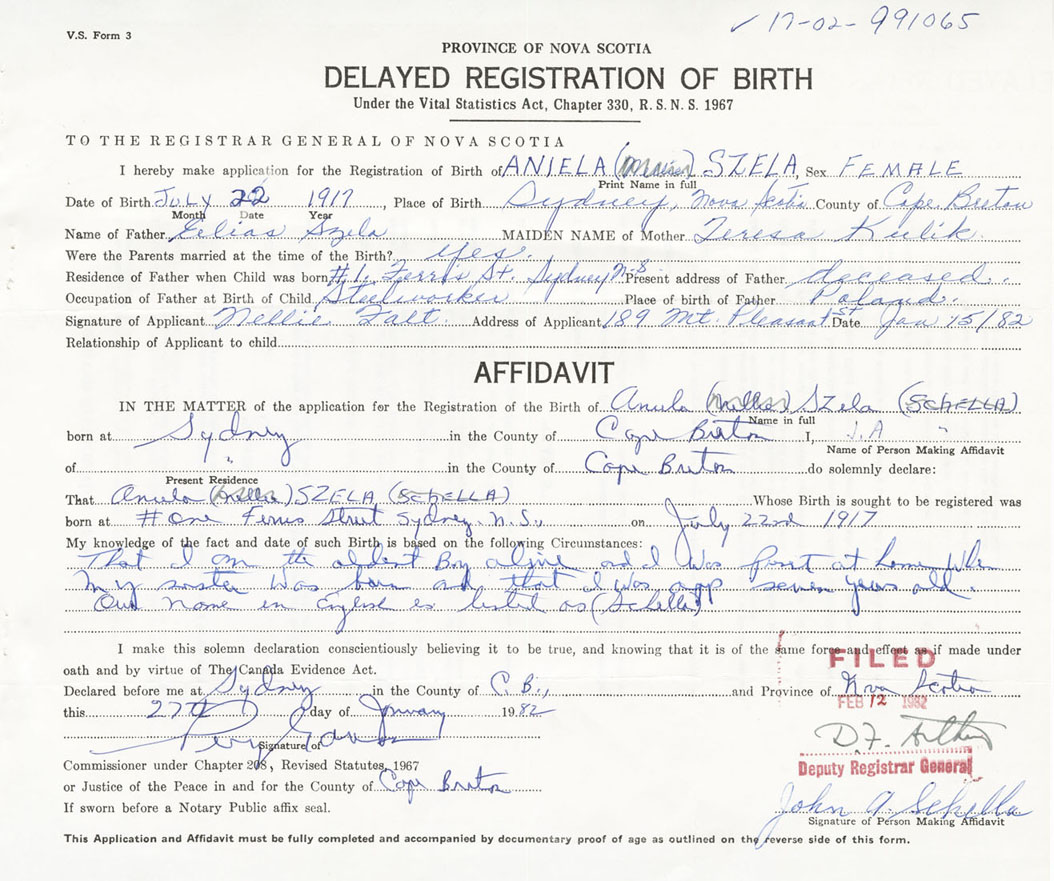 ✓ 17-02-991065
V.S. Form 3
PROVINCE OF NOVA SCOTIA
DELAYED REGISTRATION OF BIRTH
Under the Vital Statistics Act, Chapter 330, R.S.N.S. 1967
TO THE REGISTRAR GENERAL OF NOVA SCOTIA
I hereby make application for the Registration of Birth of ANIELA SZELA, Sex FEMALE
Print Name in full
Date of Birth JULY 22 1917, Place of Birth Sydney, Nova Scotia County of Cape Breton
Month Date Year
Name of Father Elias Szela MAIDEN NAME of Mother Teresa Kulik.
Were the Parents married at the time of the Birth? yes.
Residence of Father when Child was born #1. Ferris St. Sydney N.S Present address of Father deceased.
Occupation of Father at Birth of Child Steelworker Place of birth of Father Poland.
Signature of Applicant Nellie Falt. Address of Applicant 189 Mt. Pleasant St Date Jan 15/82
Relationship of Applicant to child
AFFIDAVIT
IN THE MATTER of the application for the Registration of the Birth of Aniela (Nellie) SZela (SCHELLA)
Name in full
born at Sydney in the County of Cape Breton I, J.A "
Name of Person Making Affidavit
of " in the County of Cape Breton do solemnly declare:
Present Residence
That Aniela (Nellie) SZELA (SCHELLA) Whose Birth is sought to be registered was
born at #One Ferris Street Sydney. N.S. on July 22nd 1917
My knowledge of the fact and date of such Birth is based on the following Circumstances:
That I am the oldest Boy alive and I was at home when
my sister was born and that I was app seven years old.
Our name in is listed as (Schella)
I make this solemn declaration conscientiously believing it to be true, and knowing that it is of the same force and effect as if made under
oath and by virtue of The Canada Evidence Act.
FILED
Declared before me at Sydney in the County of C.B., and Province of Nova Scotia
FEB 12 1982
this 27th day of January 1982
Signature of
Commissioner under Chapter 208, Revised Statutes, 1967
Deputy Registrar General
or Justice of the Peace in and for the County of Cape Breton
John A. Schella
If sworn before a Notary Public affix seal.
Signature of Person Making Affidavit
This Application and Affidavit must be fully completed and accompanied by documentary proof of age as outlined on the reverse side of this form.